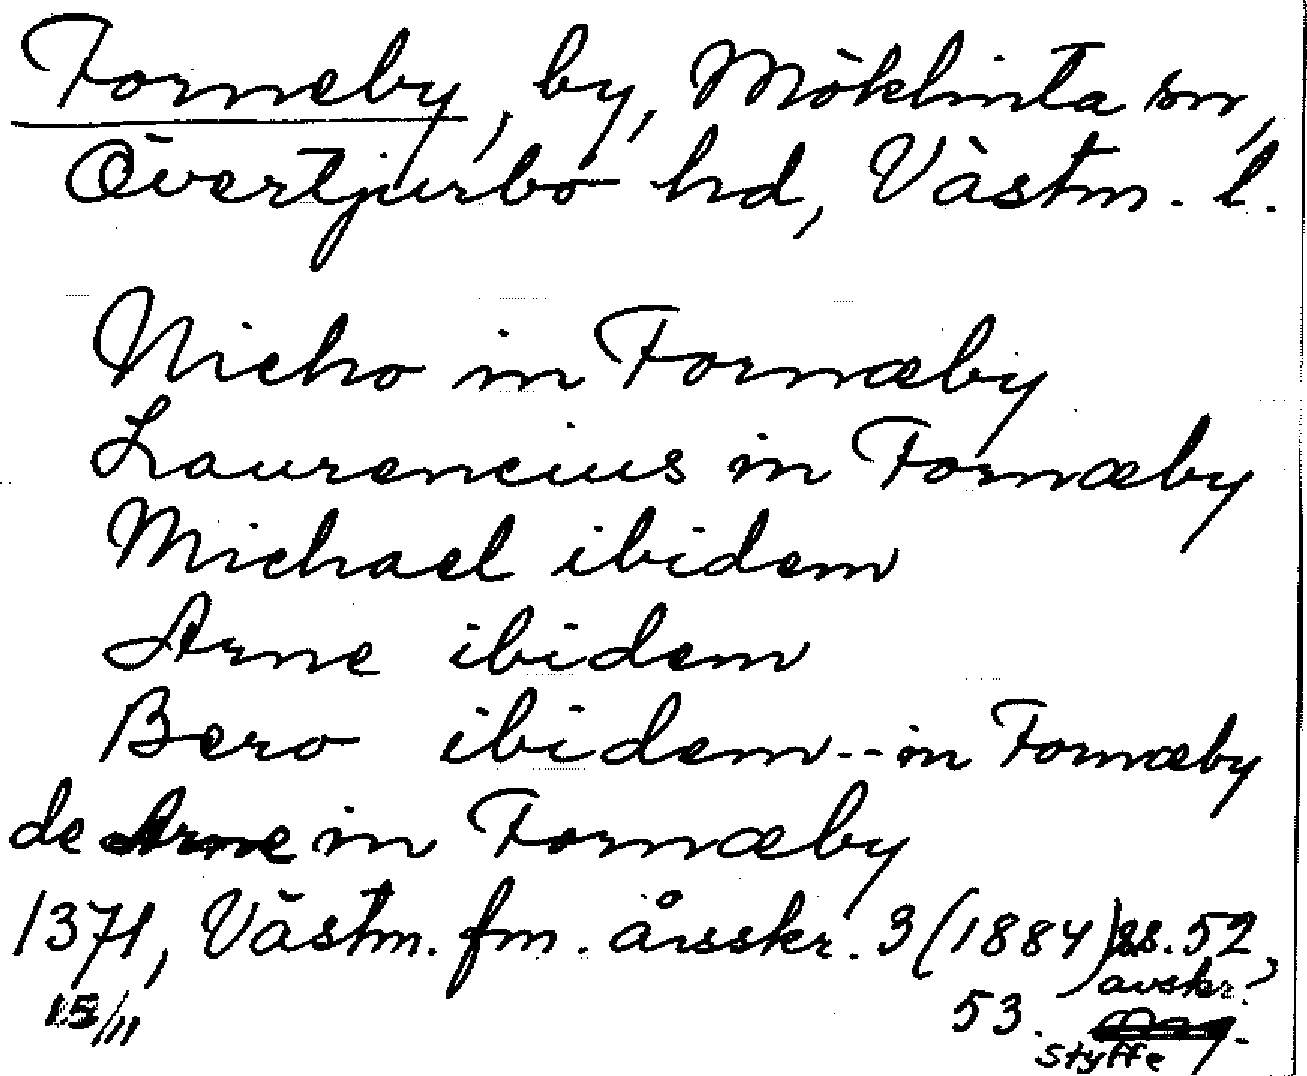 Forneby, by, Möklinta sn,
Övertjurbo hd, Västm. l.
Nicho in Fornæby
Laurencius in Fornæby
Michael ibidem
Arne ibidem
Bero ibidem -- in Fornæby
de Arne in Fornæby
1371, Västm. fm. årsskr. 3 (1884) ss. 52,
15/11 53. avskr.?
Styffe